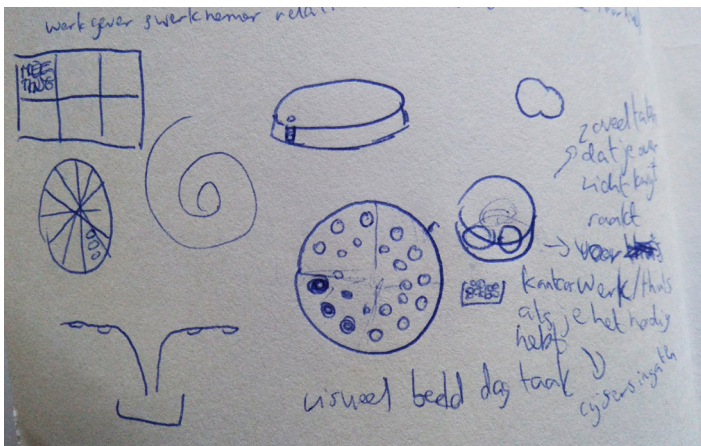 werkgever & werknemer relati
MEE
TING
zoveel taken
dat je over
zicht kwijt
raakt
→ voor
kantoorwerk/thuis
als je het nodig
hebt
visueel beeld dag taak